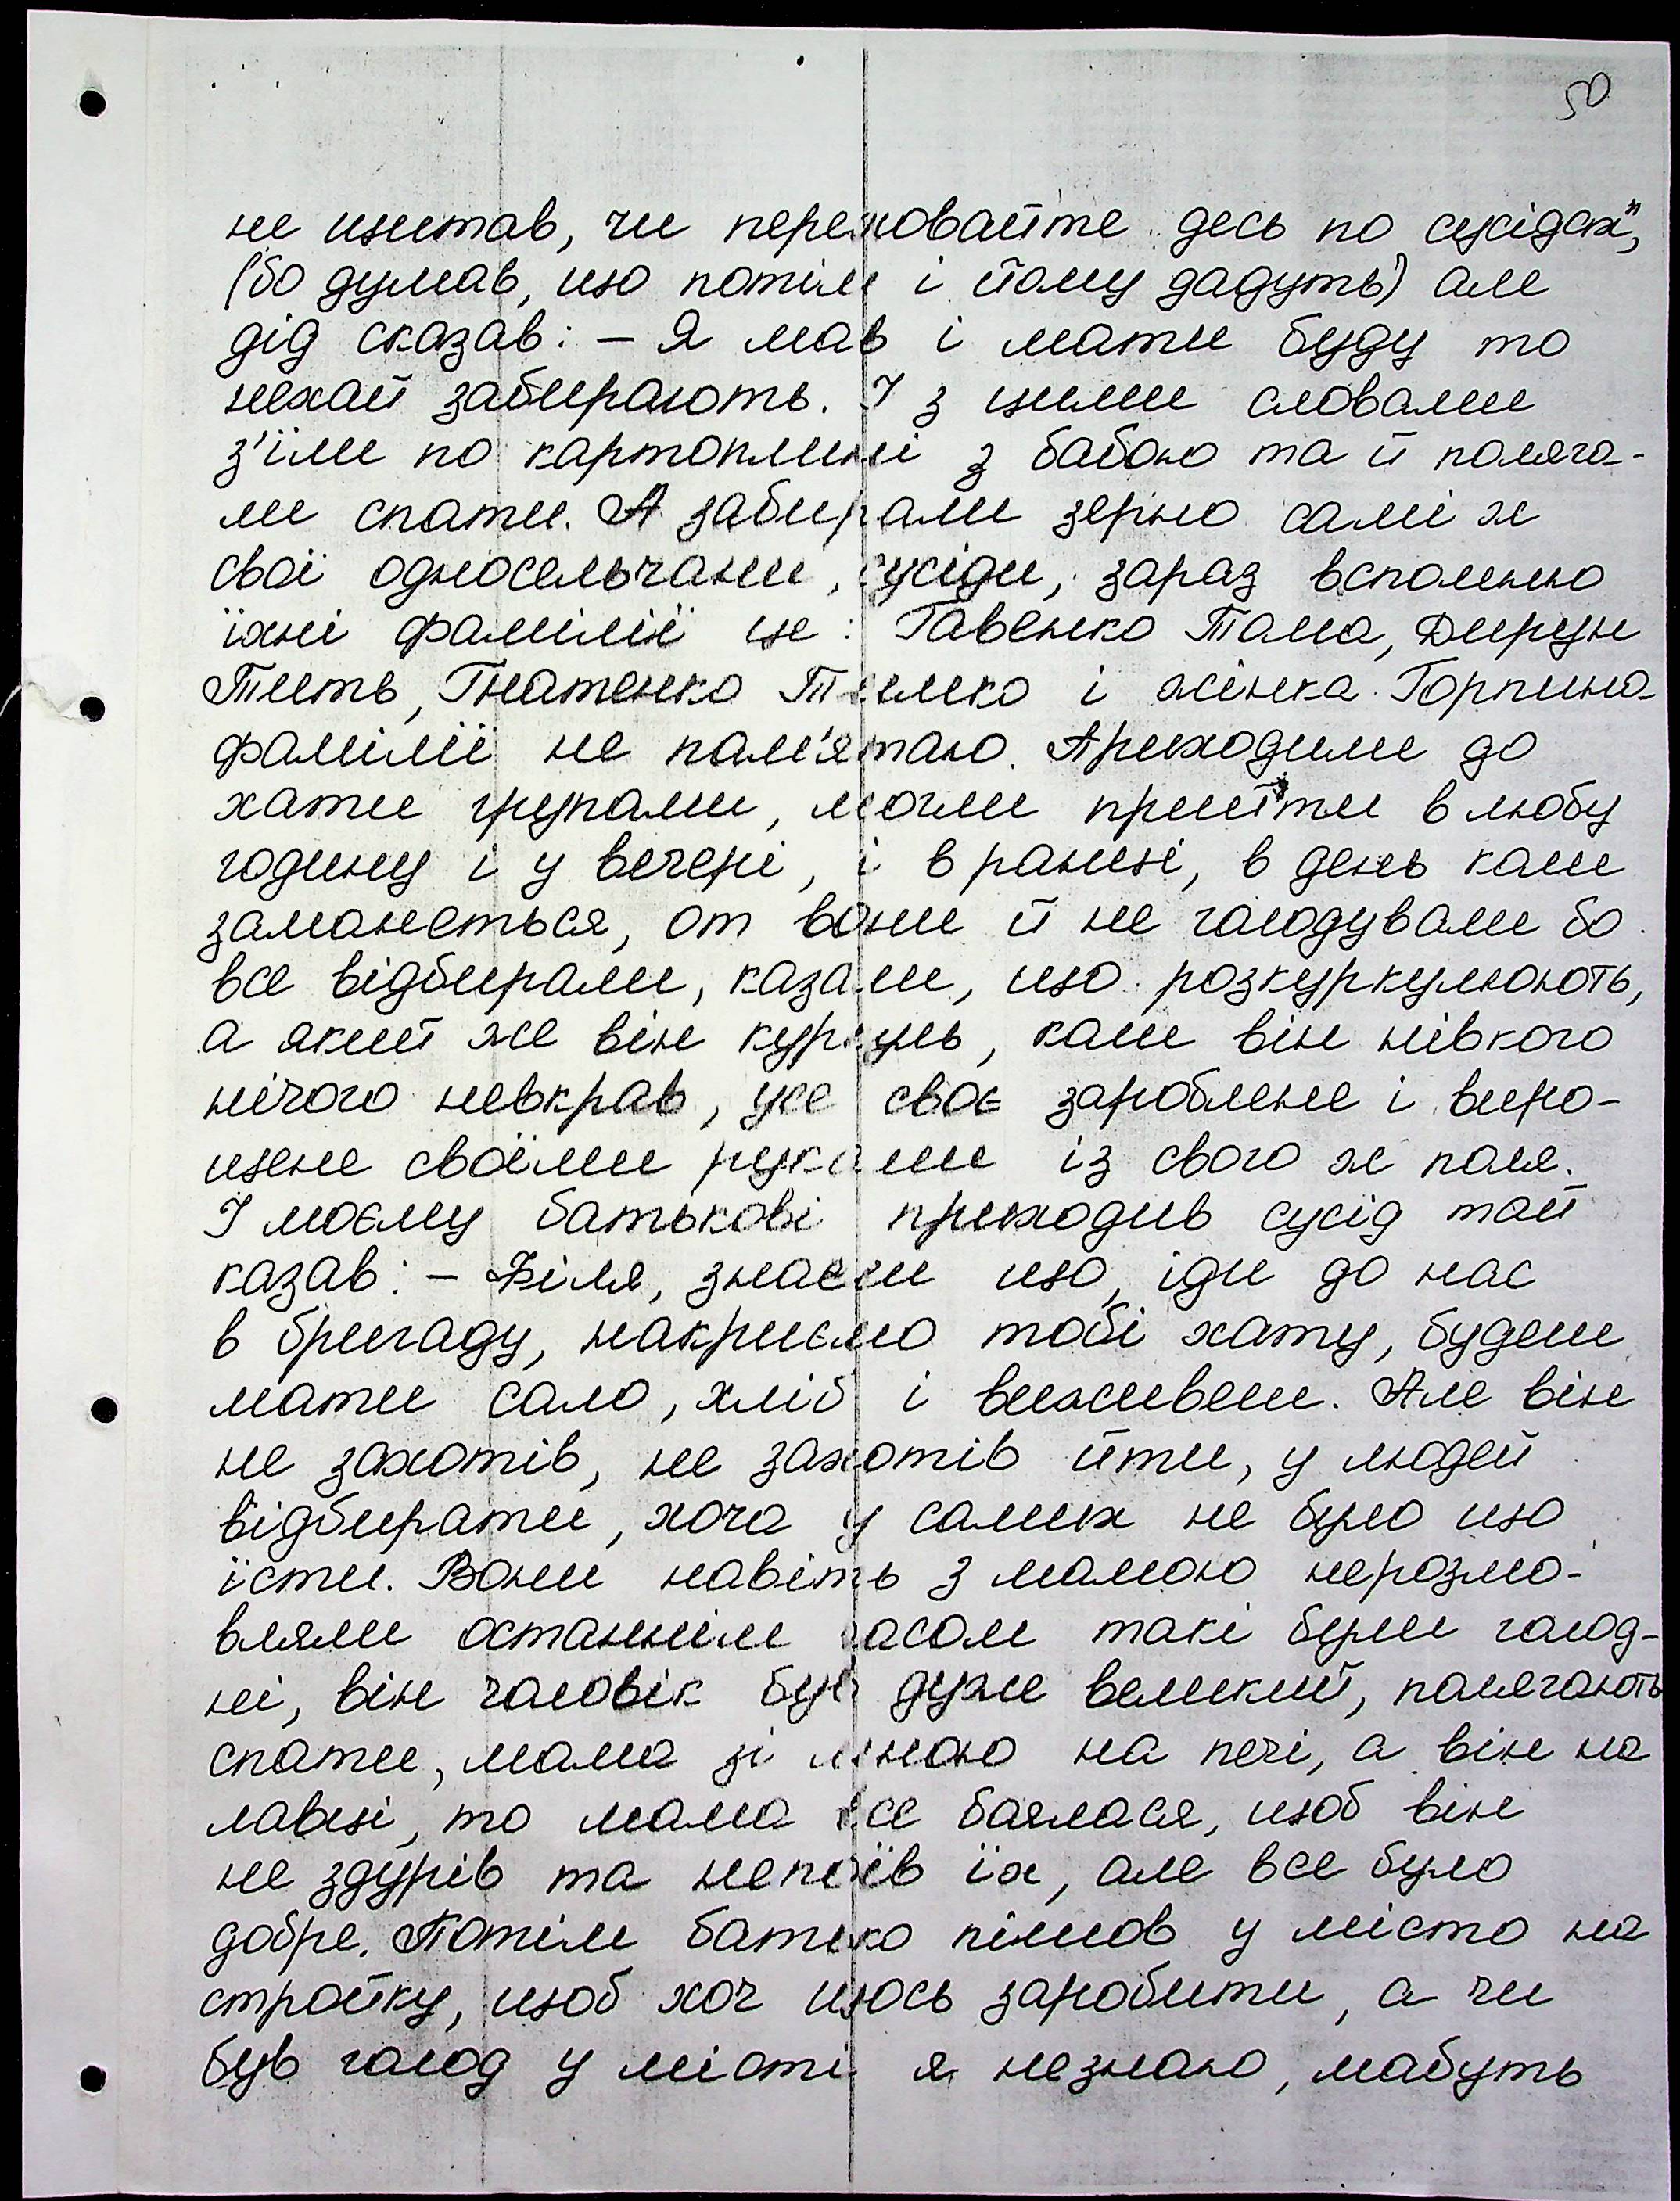 50
не щитав, чи переховайте десь по сусідах",
(бо думав, що потім і йому дадуть) але
дід сказав: – Я мав і мати буду то
нехай забирають. І з цими словами
з'їли по картоплині з бабою та й поляга-
ли спати. А забирали зерно самі ж
свої односельчани, сусіди, зараз вспомню
їхні фамілії це: Гавенко Тома, Дирун
Тить, Гнатенко Тимко і жінка Горпина
фамілії не пам'ятаю. Приходили до
хати групами, могли прийти в любу
годину і у вечері, і в ранці, в день коли
заманеться, от вони й не голодували бо
все відбирали, казали, що розкуркулюють,
а який же він куркуль, коли він нівкого
нічого невкрав, усе своє зароблене і виро-
щене своїми руками із свого ж поля.
І моєму батькові приходив сусід тай
казав: – Філя, знаєш що, іди до нас
в бригаду, накриємо тобі хату, будеш
мати сало, хліб і виживеш. Але він
не захотів, не захотів йти, у людей
відбирати, хоча у самих не було що
їсти. Вони навіть з мамою нерозмо-
вляли останнім часом такі були голод-
ні, він чоловік був дуже великий, полягають
спати, мама зі мною на печі, а він на
лавці, то мама все боялася, щоб він
не здурів та непоїв їх, але все було
добре. Потім батько пішов у місто на
стройку, щоб хоч щось заробити, а чи
був голод у місті я незнаю, мабуть